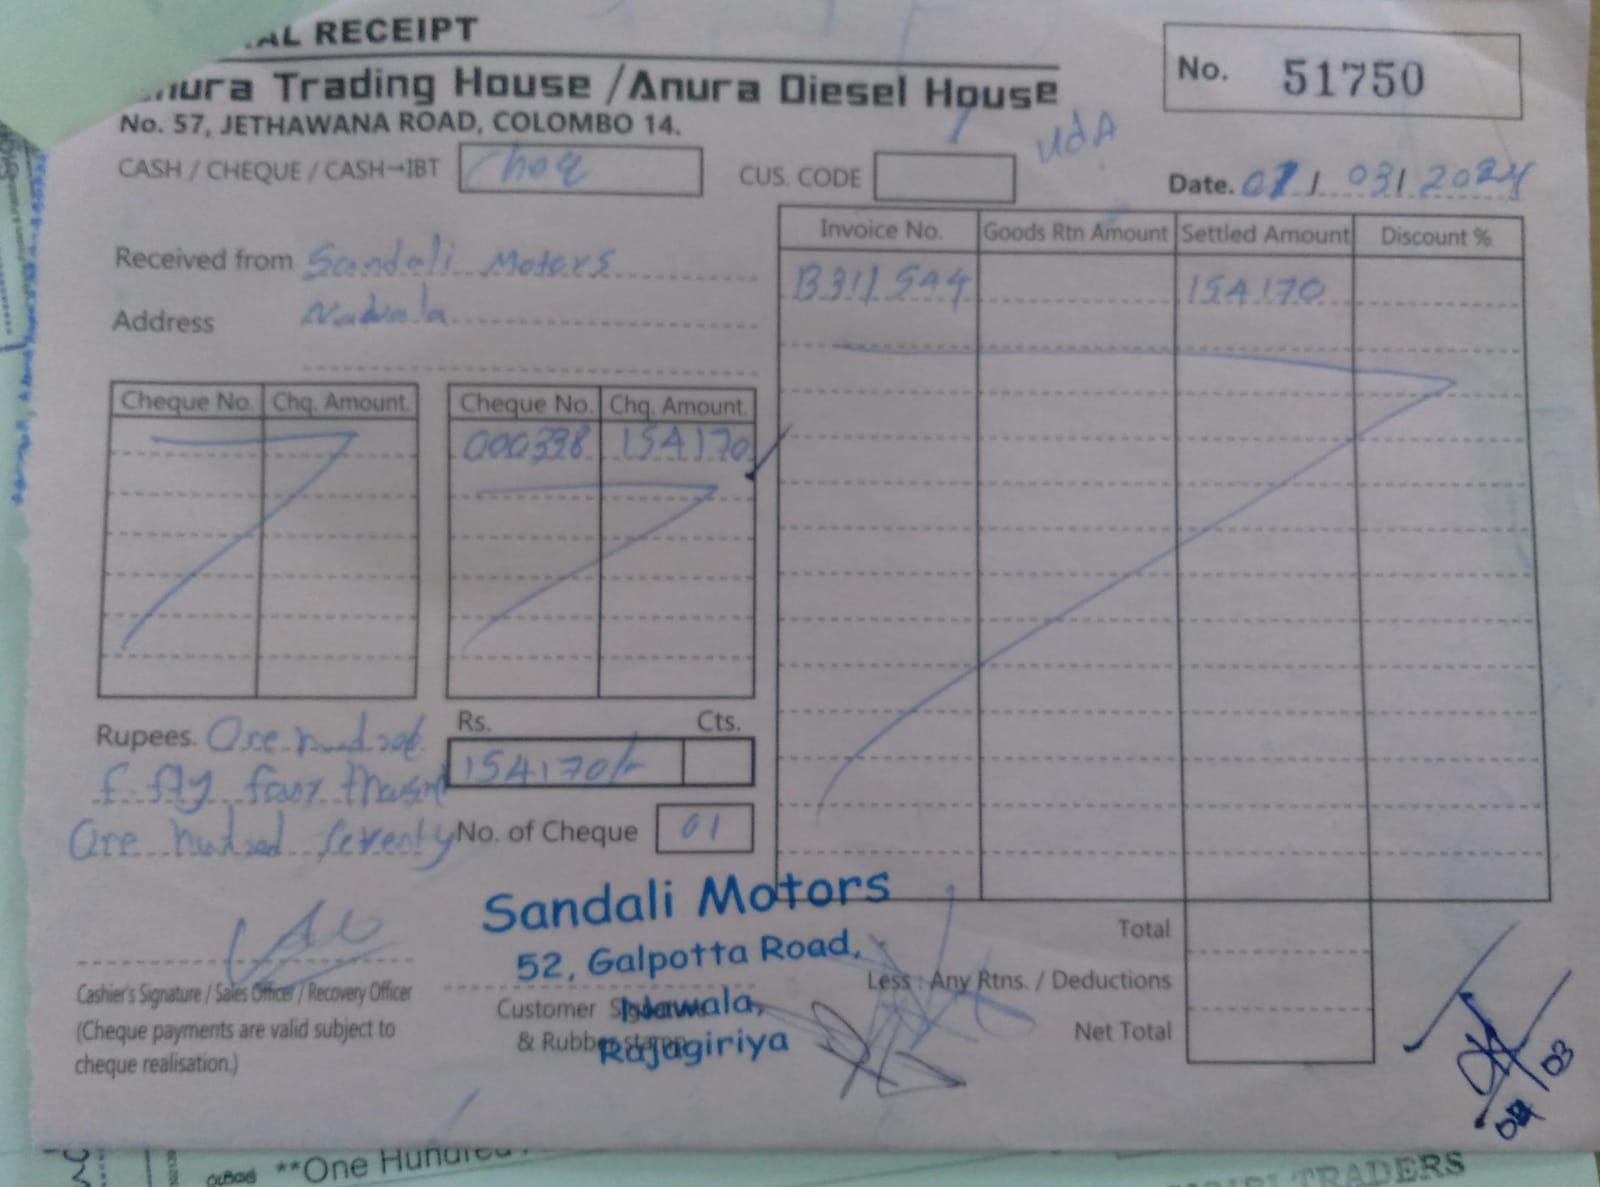 AL RECEIPT
Anura Trading House / Anura Diesel House
No. 57, JETHAWANA ROAD, COLOMBO 14.
No. 51750
CASH / CHEQUE / CASH→IBT Cheq
CUS. CODE
UdA
Date. 07 / 03 / 2024
Received from Sandali Motors
Address Nawala
Invoice No. Goods Rtn Amount Settled Amount Discount %
B311544 154170
Cheque No. Chq. Amount.
Cheque No. Chq. Amount.
000398 154170
Rupees. One hundred
fifty four thousand
One hundred seventy
Rs. Cts.
154170/-
No. of Cheque 01
Cashier's Signature / Sales Officer / Recovery Officer
(Cheque payments are valid subject to
cheque realisation.)
Customer Signature
& Rubber stamp
Sandali Motors
52, Galpotta Road,
Nawala,
Rajagiriya
Total
Less : Any Rtns. / Deductions
Net Total
**One Hundred
TRADERS